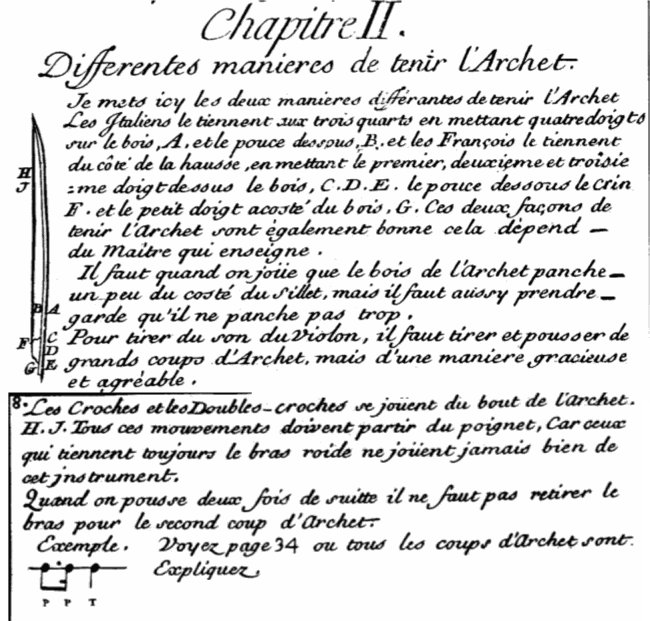 Chapitre II.
Differentes manieres de tenir l'Archet.
Je mets icy les deux manieres différantes de tenir l'Archet
Les Jtaliens le tiennent aux trois quarts en mettant quatre doigts
sur le bois, A, et le pouce dessous, B, et les François le tiennent
du côté de la hausse, en mettant le premier, deuxieme et troisie
=me doigt dessus le bois, C.D.E. le pouce dessous le Crin
F. et le petit doigt acosté du bois, G. Ces deux façons de
tenir l'Archet sont également bonne cela dépend
du Maître qui enseigne.
Il faut quand on joüe que le bois de l'Archet panche
un peu du costé du Sillet, mais il faut aussy prendre
garde qu'il ne panche pas trop.
Pour tirer du son du Violon, il faut tirer et pousser de
grands coups d'Archet, mais d'une maniere gracieuse
et agréable.
H
J
B A
F C
D
G E
8. Les Croches et les Doubles-croches se joüent du bout de l'archet.
H. J. Tous ces mouvements doivent partir du poignet, Car ceux
qui tiennent toujours le bras roide ne joüent jamais bien de
cet jnstrument.
Quand on pousse deux fois de suitte il ne faut pas retirer le
bras pour le second coup d'Archet.
Exemple. Voyez page 34 ou tous les coups d'Archet sont.
Expliquez,
P P T